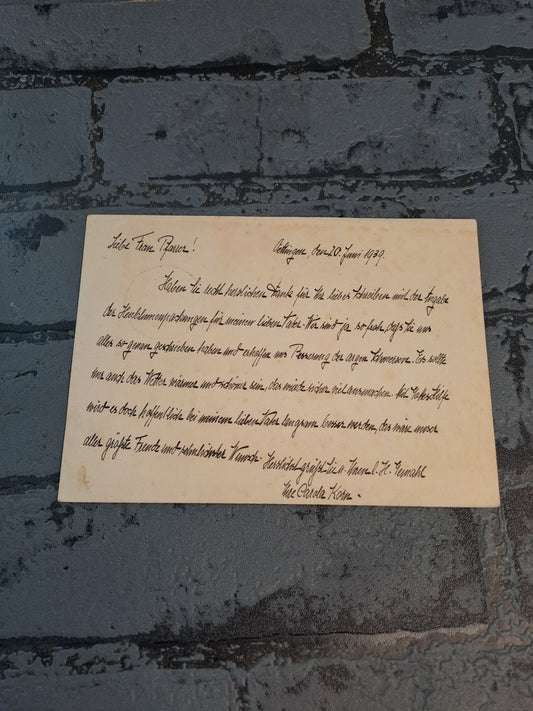 Liebe Frau Pfarrer! Oettingen, den 20. Juni 1939.
Haben Sie recht herzlichen Dank für Ihr liebes Schreiben mit der Angabe
der Heublumenpackungen für meinen lieben Vater. Wir sind ja so froh, daß Sie uns
alles so genau geschrieben haben und erhoffen uns Besserung der argen Schmerzen. Es sollte
nur auch das Wetter wärmer und schöner sein, das würde sicher viel ausmachen. Mit Gottes Hilfe
wird es doch hoffentlich bei meinem lieben Vater langsam besser werden, das wäre unser
aller größte Freude und sehnlichster Wunsch. Herzlichst grüßt Sie u. Ihren l. H. Gemahl
Ihre Carola Korn.